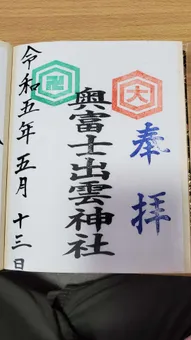 奉拝
大
奥富士出雲神社
卍
令和五年五月十三日